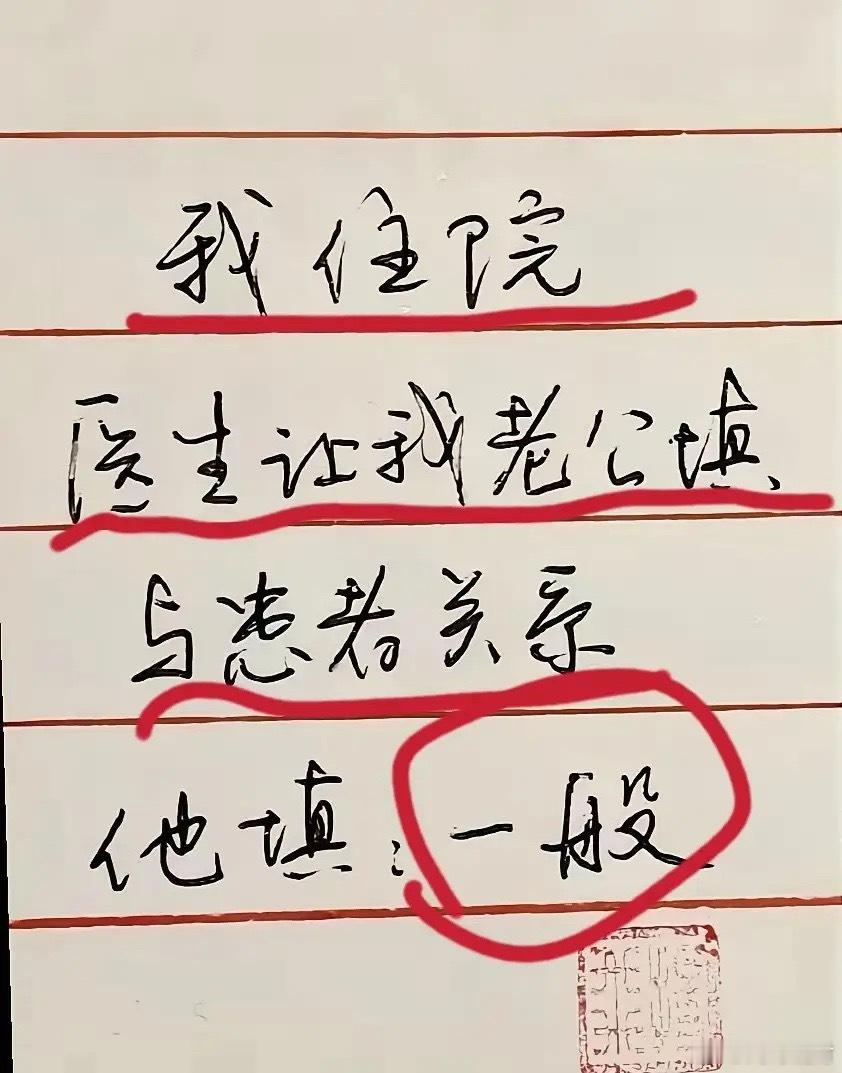 我住院
医生让我老公填
与患者关系
他填：一般